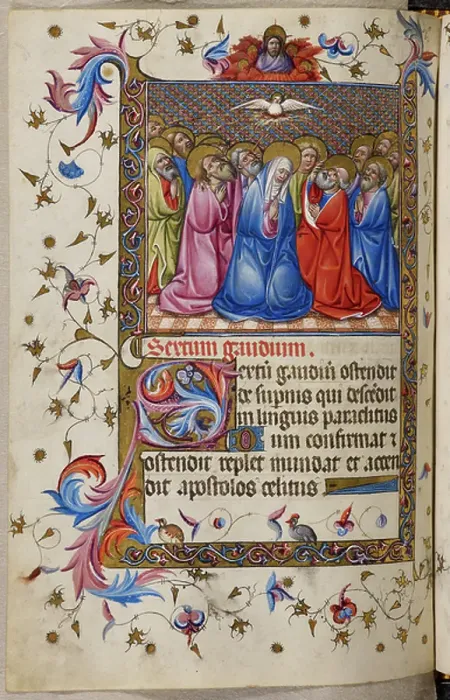 Sextum gaudium.
Sextū gaudiū ostendit
de supnis qui descēdit
in linguis paraclitus
um confirmat ⁊
ostendit replet mundat et accen
dit apostolos celitus